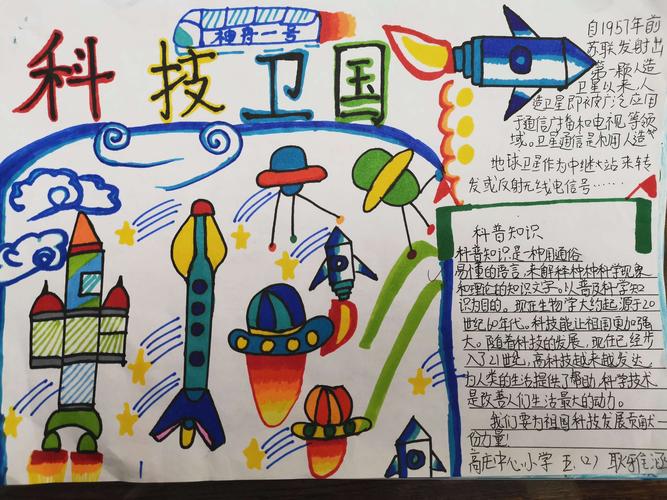 神舟一号
科技卫国
自1957年前
苏联发射出
第一颗人造
卫星以来,人
造卫星即被广泛应用
于通信广播和电视等领
域。卫星通信是利用人造
地球卫星作为中继大站来转
发或反射无线电信号……
科普知识
科普知识是一种用通俗
易懂的语言,来解释种种科学现象
和理论的知识文字。以普及科学知
识为目的。现在生物学大约起源于20
世纪60年代。科技能让祖国更加强
大。随着科技的发展,现在已经步
入了21世纪,高科技越来越发达,
为人类的生活提供了帮助,科学技术
是改善人们生活最大的动力。
我们要为祖国科技发展贡献一
份力量!
高庄中心小学 五.(2) 耿雅涵